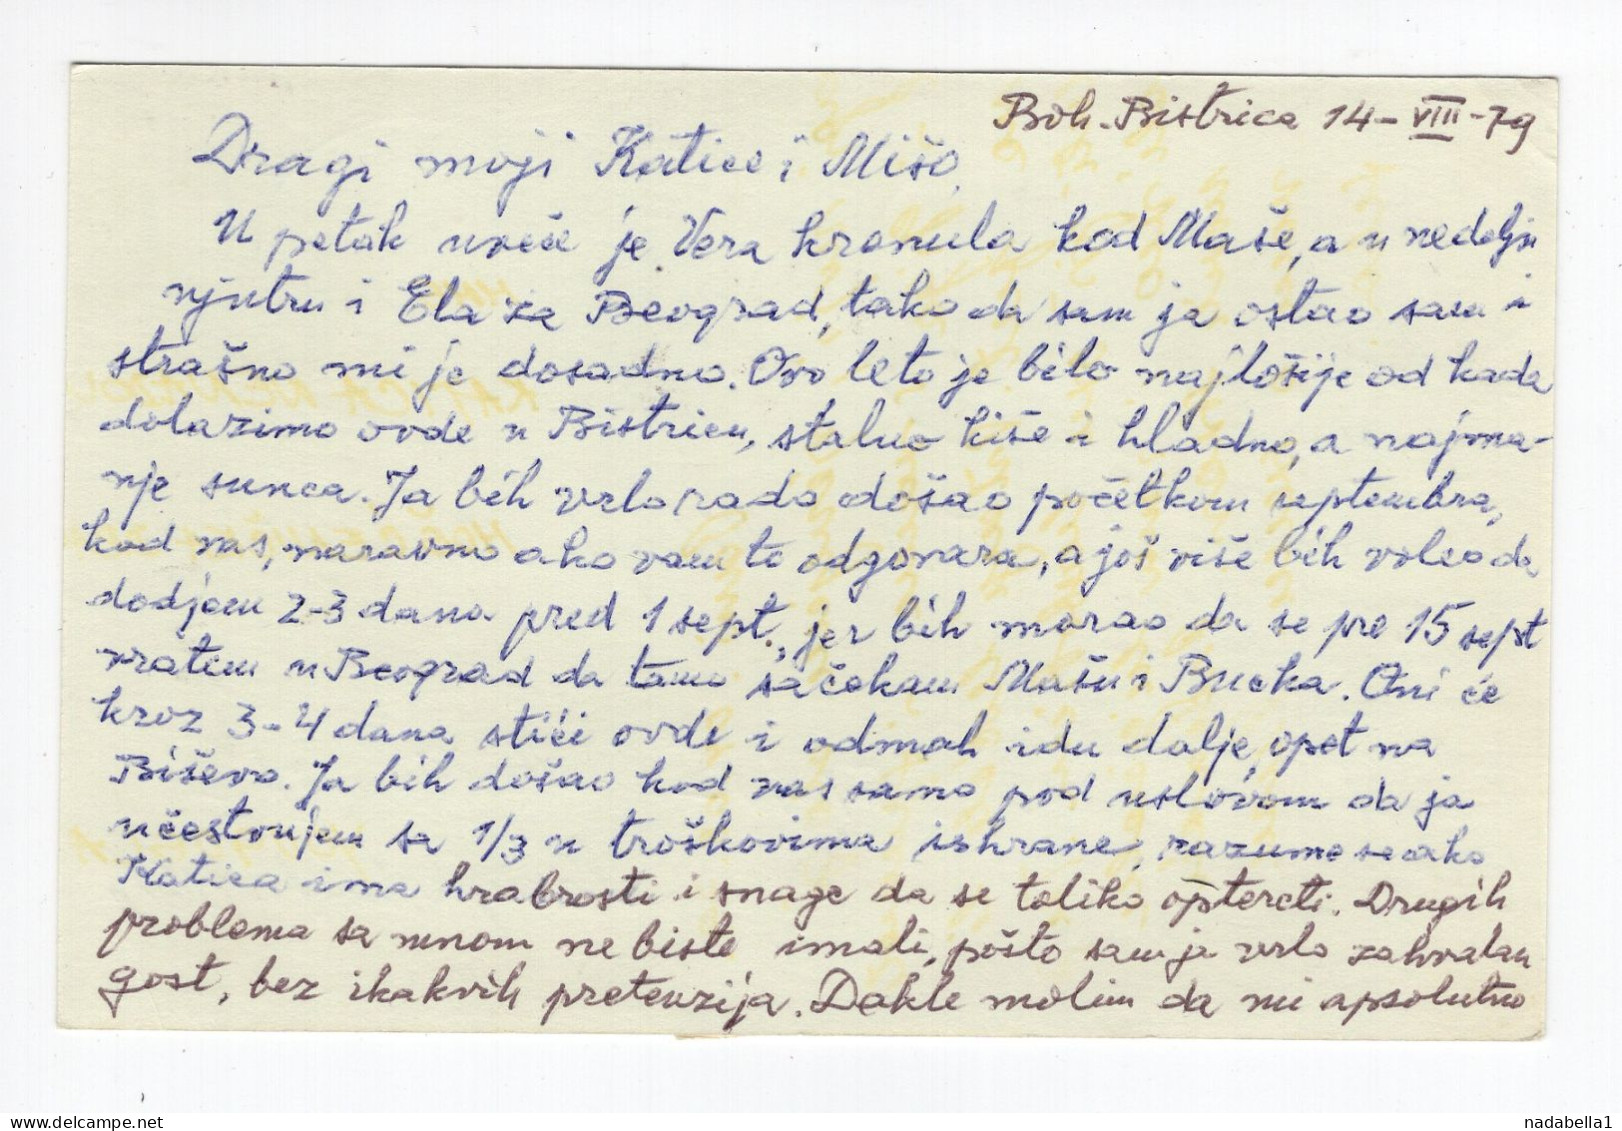 Boh. Bistrica 14-VIII-79
Dragi moji Katice i Mišo,
U petak uveče je Vera krenula kod Maše, a u nedelju
ujutru i Ela za Beograd, tako da sam ja ostao sam i
strašno mi je dosadno. Ovo leto je bilo najlošije od kada
dolazimo ovde u Bistricu, stalno kiše i hladno, a najma-
nje sunca. Ja bih vrlo rado došao početkom septembra,
kod vas, naravno ako vam to odgovara, a još više bih voleo da
dodjem 2-3 dana pred 1 sept., jer bih morao da se pre 15 sept
vratem u Beograd da tamo sačekam Mašu i Bucka. Oni će
kroz 3-4 dana stići ovde i odmah idu dalje, opet na
Biševo. Ja bih došao kod vas samo pod uslovom da ja
učestvujem sa 1/3 u troškovima ishrane, razume se ako
Katica ima hrabrosti i snage da se toliko optereti. Drugih
problema sa mnom ne biste imali, pošto sam ja vrlo zahvalan
gost, bez ikakvih pretenzija. Dakle molim da mi apsolutno
nadabella1